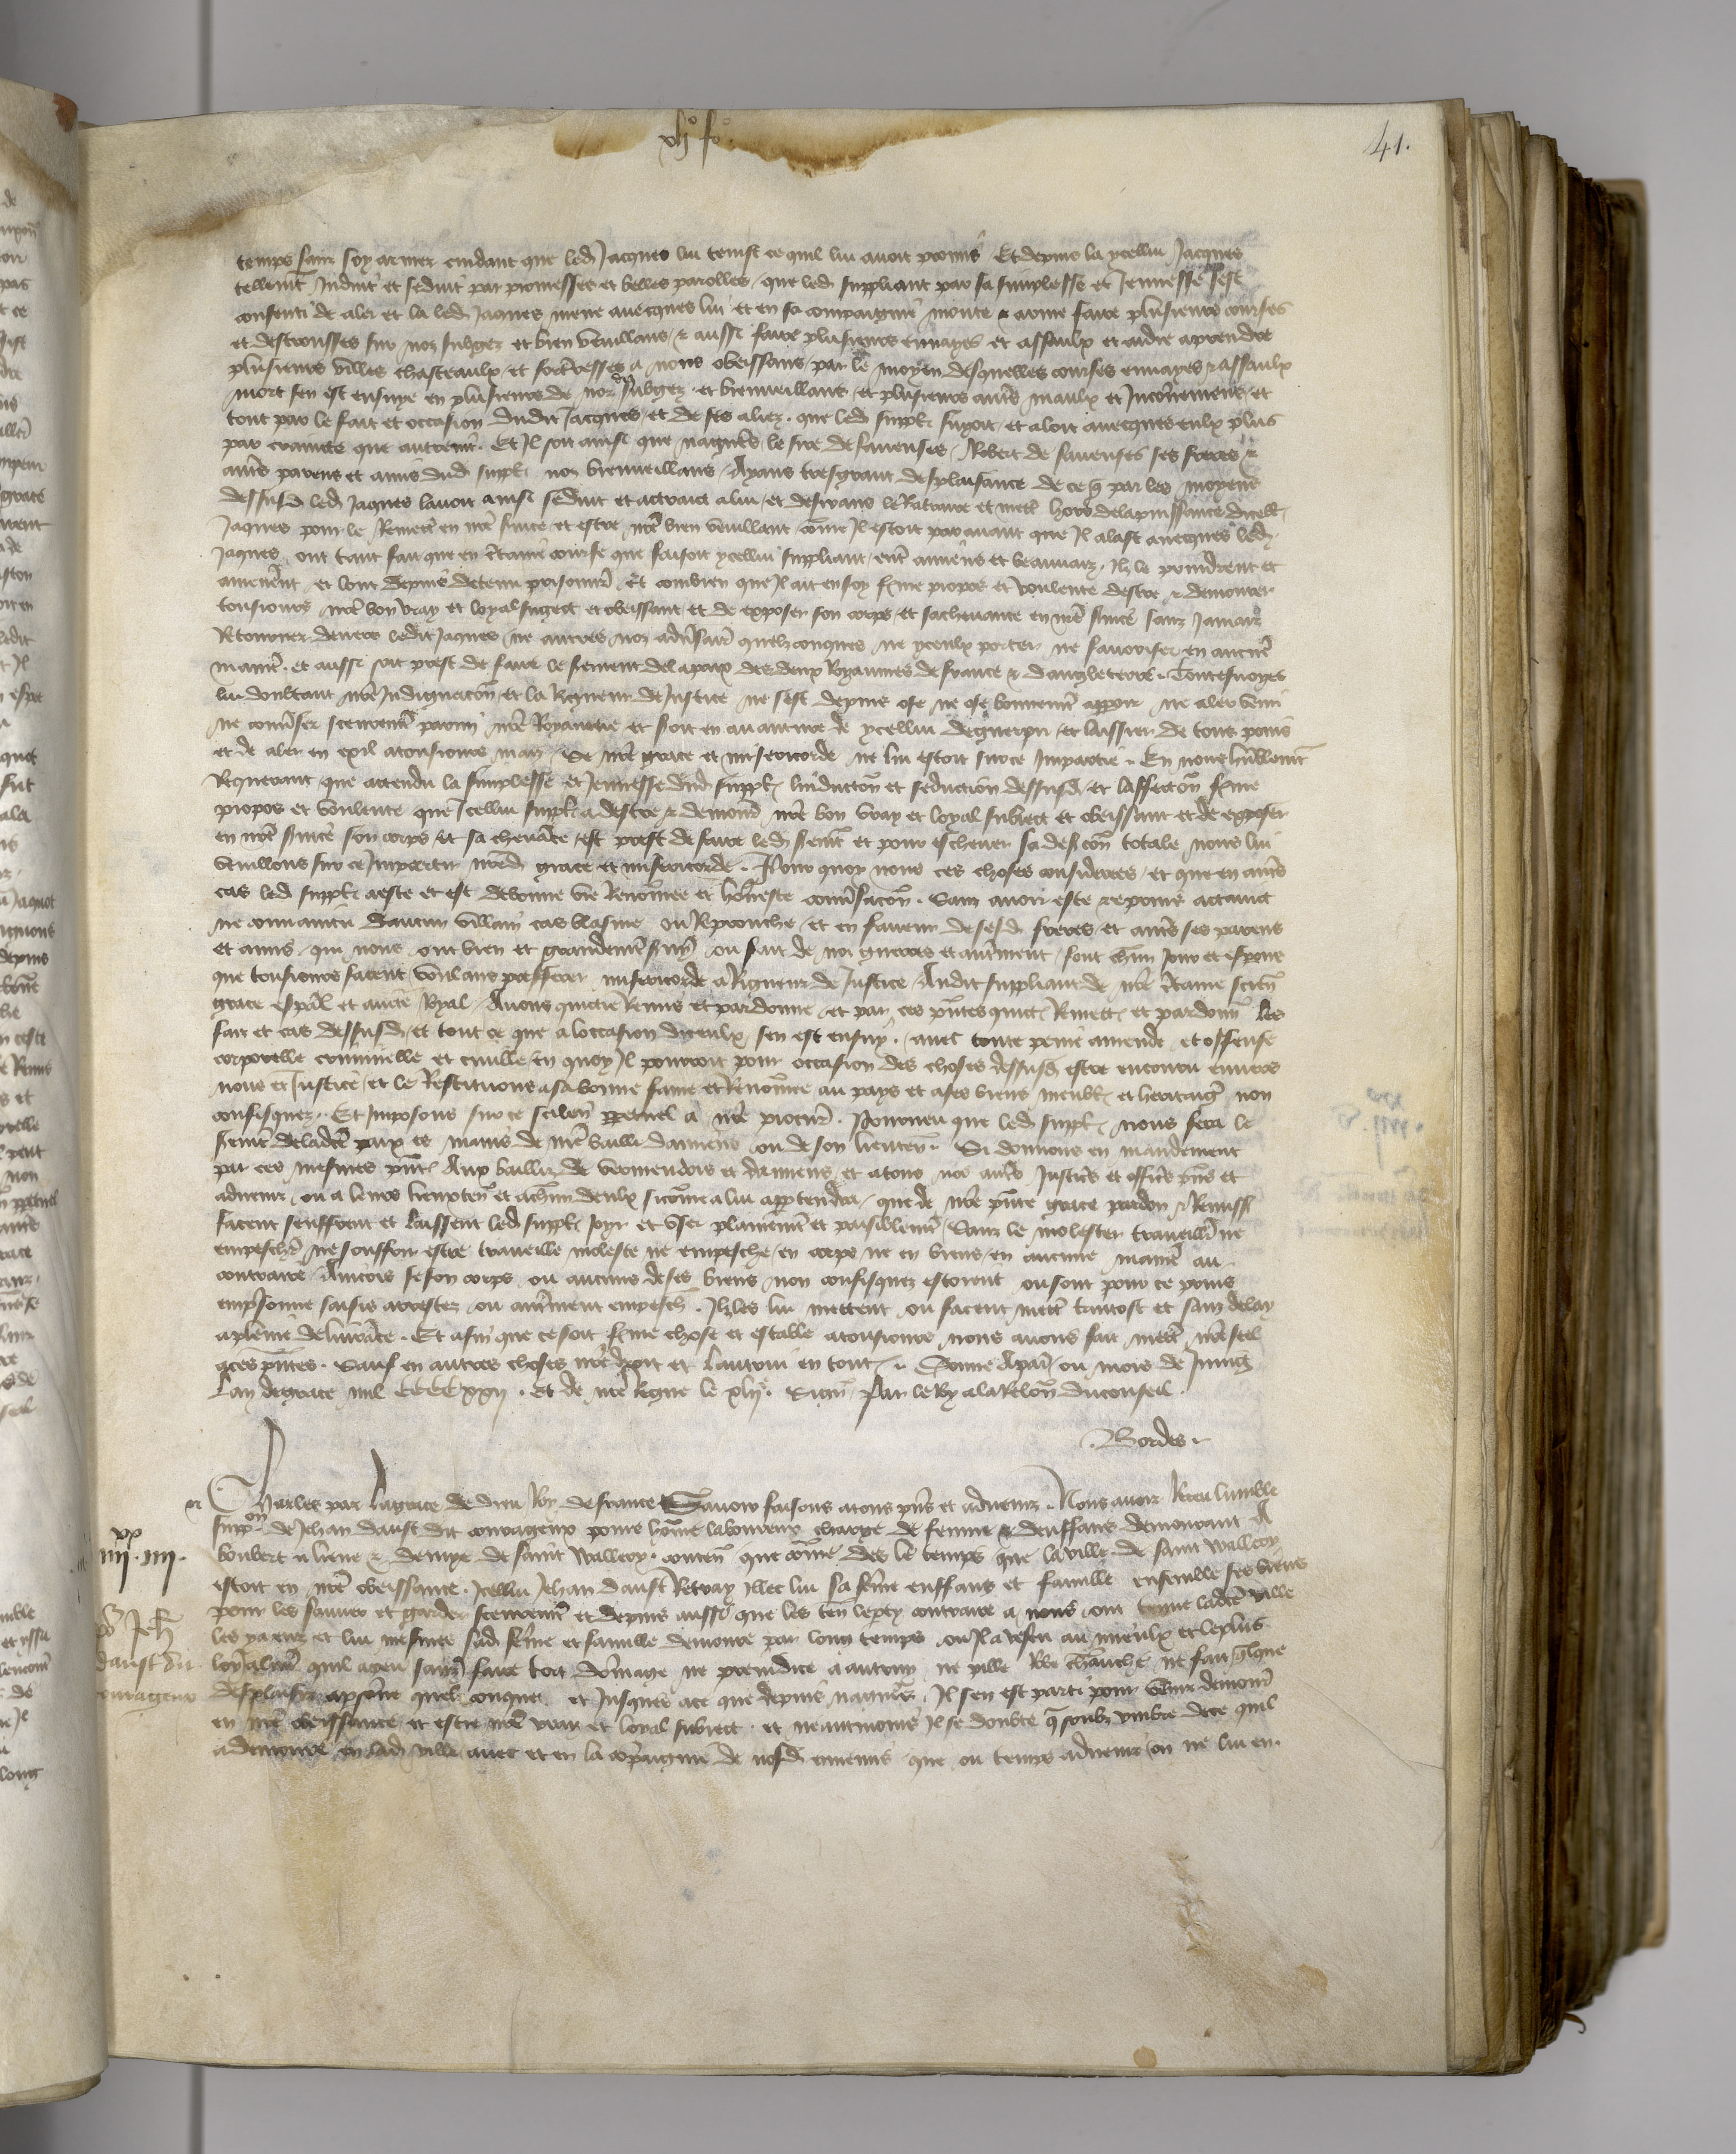 xlj fo
41.
temps sanz soy armer cuidant que led Jaques lui tenist ce quil lui avoit promis Et depuis la ycellui Jacques
tellemt induit et seduit par promesses et belles parolles que led suppliant par sa simplesse et Jeunesse sest
consenti de aler et la led Jaques mene avecques lui et en sa compaignie monte & arme faire plusieurs courses
et destrousses sur noz subgez et bien veuillans & aussi faire plusieurs envayes et assaulx et aidie a prendre
plusieurs villes chasteaulx et forteresses a nous obeissans par le moyen desquelles courses envayes & assaulx
mort sen est ensuye en plusieurs de noz d subgez et bienveillans et plusieurs auts maulx et Inconveniens et
tout par le fait et occasion dudit Jacques et de ses aliez que led suppt suyoit et aloit avecques eulx plus
par crainte que autremt Et Il soit ainsi que nagueres le sire de saveuses Robert de saveuses ses freres &
auts parens et amis dud suppt noz bienveillans Ayans tresgrant desplaisance de ce q par les moyens
dessusd led Jaques lavoit ainsi seduit et attrait a lui et desirans le Retraire et mett hors de la puissance dicell
Jaques pour le Remett en nre svice et estre nre bien veuillant come Il estoit paravant que Il alast avecques led
Jaques ont tant fait que en certaine course que faisoit ycellui suppliant entre amiens et beauvaiz Ilz le prindrent et
amenerent et lont depuis detenu prisonnier Et combien que Il ait en soy ferme propos et voulente destre & demourer
tousiours nre bon vray et loyal subgect et obeissant et de exposer son corps et sa chevance en nre svice sanz Jamais
Retourner devers ledit Jaques ne autres noz adversaires quelzconques ne yceulx porter ne favoriser en aucune
maniere et aussi soit prest de faire le serement de la paix des deux Royaumes de france & dangleterre Toutesvoyes
lui doubtant nre Indignacion et la Rigueur de Justice ne sest depuis ose ne ose bonnement apparoir ne aler venir
ne converser seurement parmi nre Royaume et soit en aventure de ycellui deguerpir et laissier de tous poins
et de aler en exil a tousiours mais Se nre grace et misericorde ne lui estoit sur ce Impartie En nous humblement
Requerant que attendu la simplesse et Jeunesse dud suppt linduction et seduction dessusd et laffection ferme
propos et voulente que Icellui suppt a destre & demourer nre bon vray et loyal subiect et obeissant et de exposer
en nre svice son corps et sa chevance est prest de faire led serment et pour eschever sa desercon totale nous lui
vueillons sur ce Impartir nosd grace et misericorde Pour quoy nous ces choses considerees et que en auts
cas led suppt a este et est de bonne vie Renommee et honneste conversacon Sanz avoir este reprins attaint
ne convaincu daucun villain cas blasme ou Reprouche et en faveur de sesd freres et auts ses parens
et amis qui nous ont bien et grandement servy ou fait de noz guerres et autrement font chun Jour et esperons
que tousiours facent voulans preferer misericorde a Rigueur de Justice Audit suppliant de nre certaine science
grace espal et aucte Royal Avons quicte Remis et pardonne et par ces pntes quictons Remettons et pardonnons les
fait et cas dessusd et tout ce que a loccasion diceulx sen est ensuy avec toute peine amende et offense
corporelle criminelle et civille en quoy Il pourroit pour occasion des choses dessusd estre encouru envers
nous et Justice et le Restituons a sa bonne fame et Renommee au pays et a ses biens meubles et heritaiges non
confisquez Et Imposons sur ce scilence perpetuel a nre procureur Pourveu que led suppt nous fera le
serment de ladicte paix es mains de nre bailli damiens ou de son lieuten Si donnons en mandement
par ces mesmes pntes Aux bailliz de vermendois et damiens et a tous noz auts Justiciers et officiers pns et
advenir ou a leurs lieuxtens et a chun deulx si comme a lui appartendra que de nre pnte grace pardon & Remiss
facent seuffrent et laissent led suppt Joyr et user plainement et paisiblement Sanz le molester travailler ne
empescher ne souffrir estre travaille moleste ne empesche en corps ne en biens en aucune maniere au
contraire Aincois se son corps ou aucuns de ses biens non confisquez estoient ou sont pour ce prins
emprisonne saisis arrestez ou autrement empesch Ilz les lui mettent ou facent mettre tantost et sanz delay
a pleine delivrance Et afin que ce soit ferme chose et estable a tousiours nous avons fait mettre nre seel
a ces pntes Sauf en autres choses nre droit et lautrui en toutes Donne a paris ou mois de Juing
Lan de grace mil CCCC xxij Et de nre Regne le xlij Signe Par le Roy a la Relon du conseil
Bordes
Charles par la grace de dieu Roy de france Savoir faisons a tous pns et advenir Nous avoir Receu lumble
suppon de Jehan daust dit courageux povre homme laboureur charge de femme & denffans demourant A
boubert a lieue & demye de saint Wallery conten que come des le temps que la ville de saint Wallery
estoit en nre obeissance Icellui Jehan daust Retray illec lui sa feme enffans et famille ensemble ses biens
pour les sauver et garder seurement et depuis aussi que les ten le pty contraire a nous ont tenue ladicte ville
les ya euz et lui mesmes sad feme et famille demoure par long temps ou Il a vescu au mieulx et le plus
loyalment quil a peu sanz faire tort domage ne preiudice a autruy ne pille Robe chevauche ne fait quelque
desplaisir a psonne quelconque et Jusques a ce que depuis nagueres Il sen est parti pour venir demourer
en nre obeissance et estre nre vray et loyal subiect et neantmoins Il se doubte q soubz umbre de ce quil
a demoure en lad ville avec et en la compaignie de nosd ennemis que ou temps advenir on ne lui en
xx
iiij iiij
po Jeh
daust dit
courageux